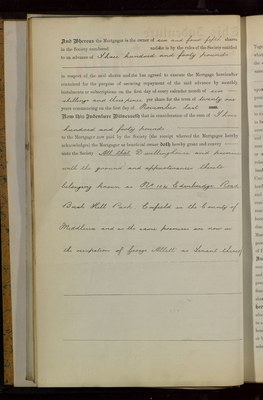 And Whereas the Mortgagor is the owner of six and four fifth shares
in the Society numbered and is by the rules of the Society entitled
to an advance of Three hundred and forty pounds
in respect of the said shares and he has agreed to execute the Mortgage hereinafter
contained for the purpose of securing repayment of the said advance by monthly
instalments or subscriptions on the first day of every calendar month of
shillings and three pence per share for the term of
years commencing on the first day of November last
Now this Indenture Witnesseth that in consideration of the sum of Three
hundred and forty pounds
to the Mortgagor now paid by the Society (the receipt whereof the Mortgagor hereby
acknowledges) the Mortgagor as beneficial owner doth hereby grant and convey
unto the Society All that Dwellinghouse and premises
with the ground and appurtenances thereto
belonging known as No Edenbridge Road
Bush Hill Park Enfield in the County of
Middlesex and as the same premises are now in
the occupation of George Abbott as Tenant thereof